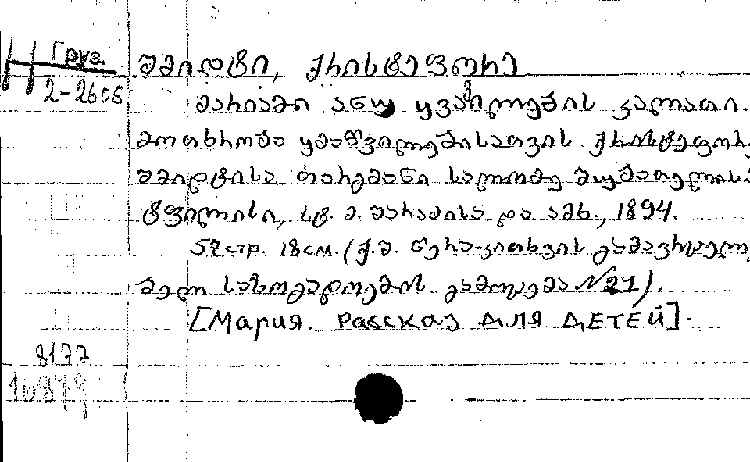 Н Груз.
2-2605
შმიდტი, ქრისტეფორე
მარიამი ანუ ყვავილების კალათი.
მოთხრობა ყმაწვილებისათვის ქრისტეფორე
შმიდტისა თარგმანი სალომე
ტფილისი, სტ. მ. შარაძისა და ამხ., 1894.
52 стр. 18 см. (ქ. შ. წერა-კითხვის გამავრცელებ
მელი საზოგადოების გამოცემა №21).
[Мария. Рассказ для детей].
8177
10879